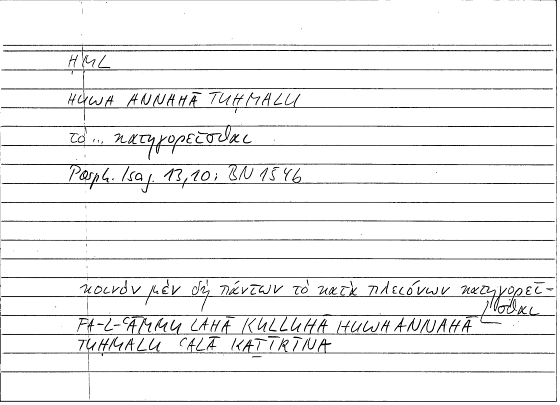 ḤML
HUWA ANNAHĀ TUḤMALU
τὸ... κατηγορεῖσθαι
Porph. Isag. 13,10: BN 154b
κοινὸν μὲν δὴ πάντων τὸ κατὰ πλειόνων κατηγορεῖ-
σθαι
FA-L-ʿĀMMU LAHĀ KULLUHĀ HUWA ANNAHĀ
TUḤMALU ʿALĀ KAṮĪRĪNA